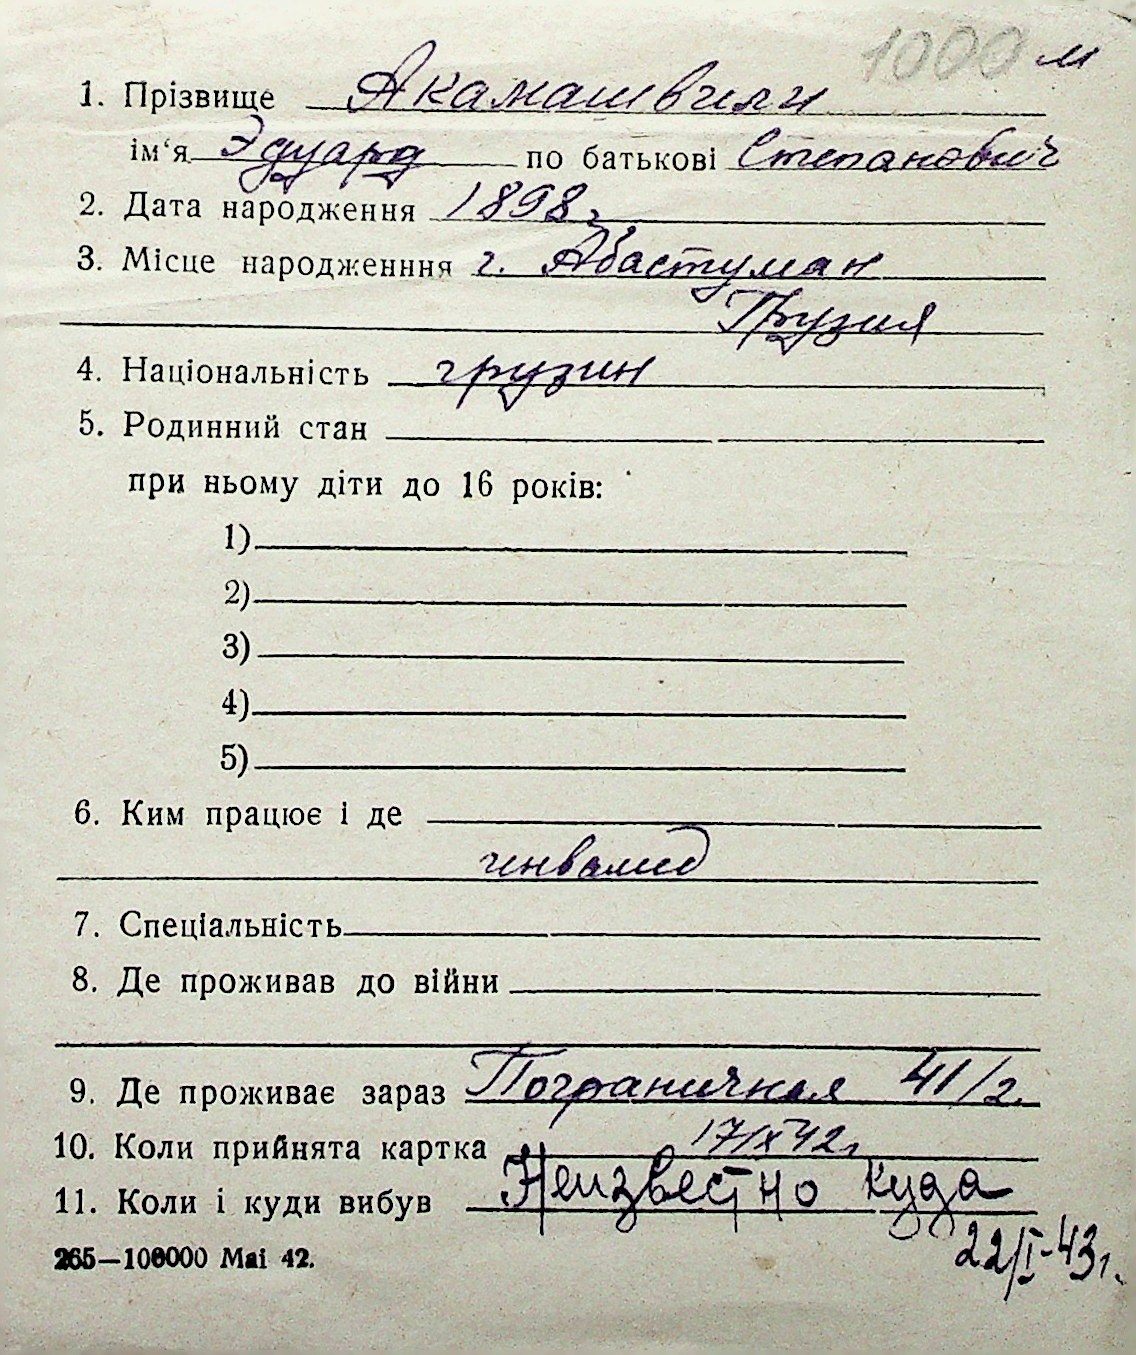 1000 м
1. Прізвище Акамашвили
ім‘я Эдуард по батькові Степанович
2. Дата народження 1898 г.
3. Місце народженння г. Абастуман
Грузия
4. Національність грузин
5. Родинний стан
при ньому діти до 16 років:
1)
2)
3)
4)
5)
6. Ким працює і де
инвалид
7. Спеціальність
8. Де проживав до війни
9. Де проживає зараз Пограничная 41/2.
10. Коли прийнята картка 17/IX 42 г.
11. Коли і куди вибув Неизвестно куда
22/I-43 г.
265—100000 Маі 42.